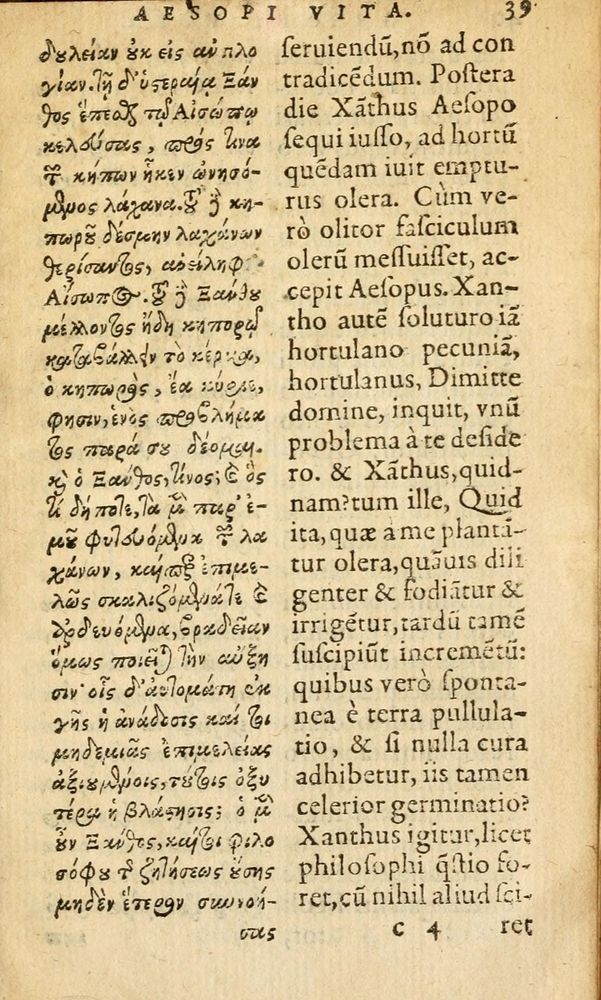 AESOPI VITA. 39
δουλείαν οὐκ εἰς ἀντιλο
γίαν. τῇ δ' ὑστεραίᾳ Ξάν
θος ἕπεσθαι τῷ Αἰσώπῳ
κελεύσας, πρός τινα
τῶν κήπων ἧκεν ὠνησό-
μενος λάχανα. τοῦ δὲ κη-
πωροῦ δέσμην λαχάνων
θερίσαντος, ἀνείληφε
Αἴσωπος. τοῦ δὲ Ξάνθου
μέλλοντος ἤδη κηπορῷ
καταβάλλειν τὸ κέρμα,
ὁ κηπωρὸς, ἔα κύριε,
φησιν, ἑνὸς προβλήμα
τος παρά σου δέομαι.
καὶ ὁ Ξάνθος, τίνος; καὶ ὃς
τί δήποτε, τὰ μὲν παρ' ἐ-
μοῦ φυτευόμενα τῶν λα
χάνων, καίπερ ἐπιμε-
λῶς σκαλιζόμενά τε καὶ
ἀρδευόμενα, βραδεῖαν
ὅμως ποιεῖται τὴν αὔξη
σιν· οἷς δ' αὐτομάτη ἐκ
γῆς ἡ ἀνάδοσις καί τοι
μηδεμιᾶς ἐπιμελείας
ἀξιουμένοις, τούτοις ὀξυ
τέρα ἡ βλάστησις; ὁ μὲν
οὖν Ξάνθος, καίτοι φιλο
σόφου τῆς ζητήσεως οὔσης
μηδὲν ἕτερον συννοή-
σας
ſeruiendū, nō ad con
tradicēdum. Poſtera
die Xāthus Aeſopo
ſequi iuſſo, ad hortū
quēdam iuit emptu-
rus olera. Cùm ve-
rò olitor faſciculum
olerū meſſuiſſet, ac-
cepit Aeſopus. Xan-
tho autē ſoluturo iā
hortulano pecuniā,
hortulanus, Dimitte
domine, inquit, vnū
problema à te deſide
ro. & Xāthus, quid-
nam? tum ille, Quid
ita, quæ a me plantā-
tur olera, quāuis dili
genter & fodiātur &
irrigētur, tardū tamē
ſuſcipiūt incremētū:
quibus verò ſponta-
nea è terra pullula-
tio, & ſi nulla cura
adhibetur, iis tamen
celerior germinatio?
Xanthus igitur, licet
philoſophi q̄ſtio fo-
ret, cū nihil aliud ſci-
C 4 ret